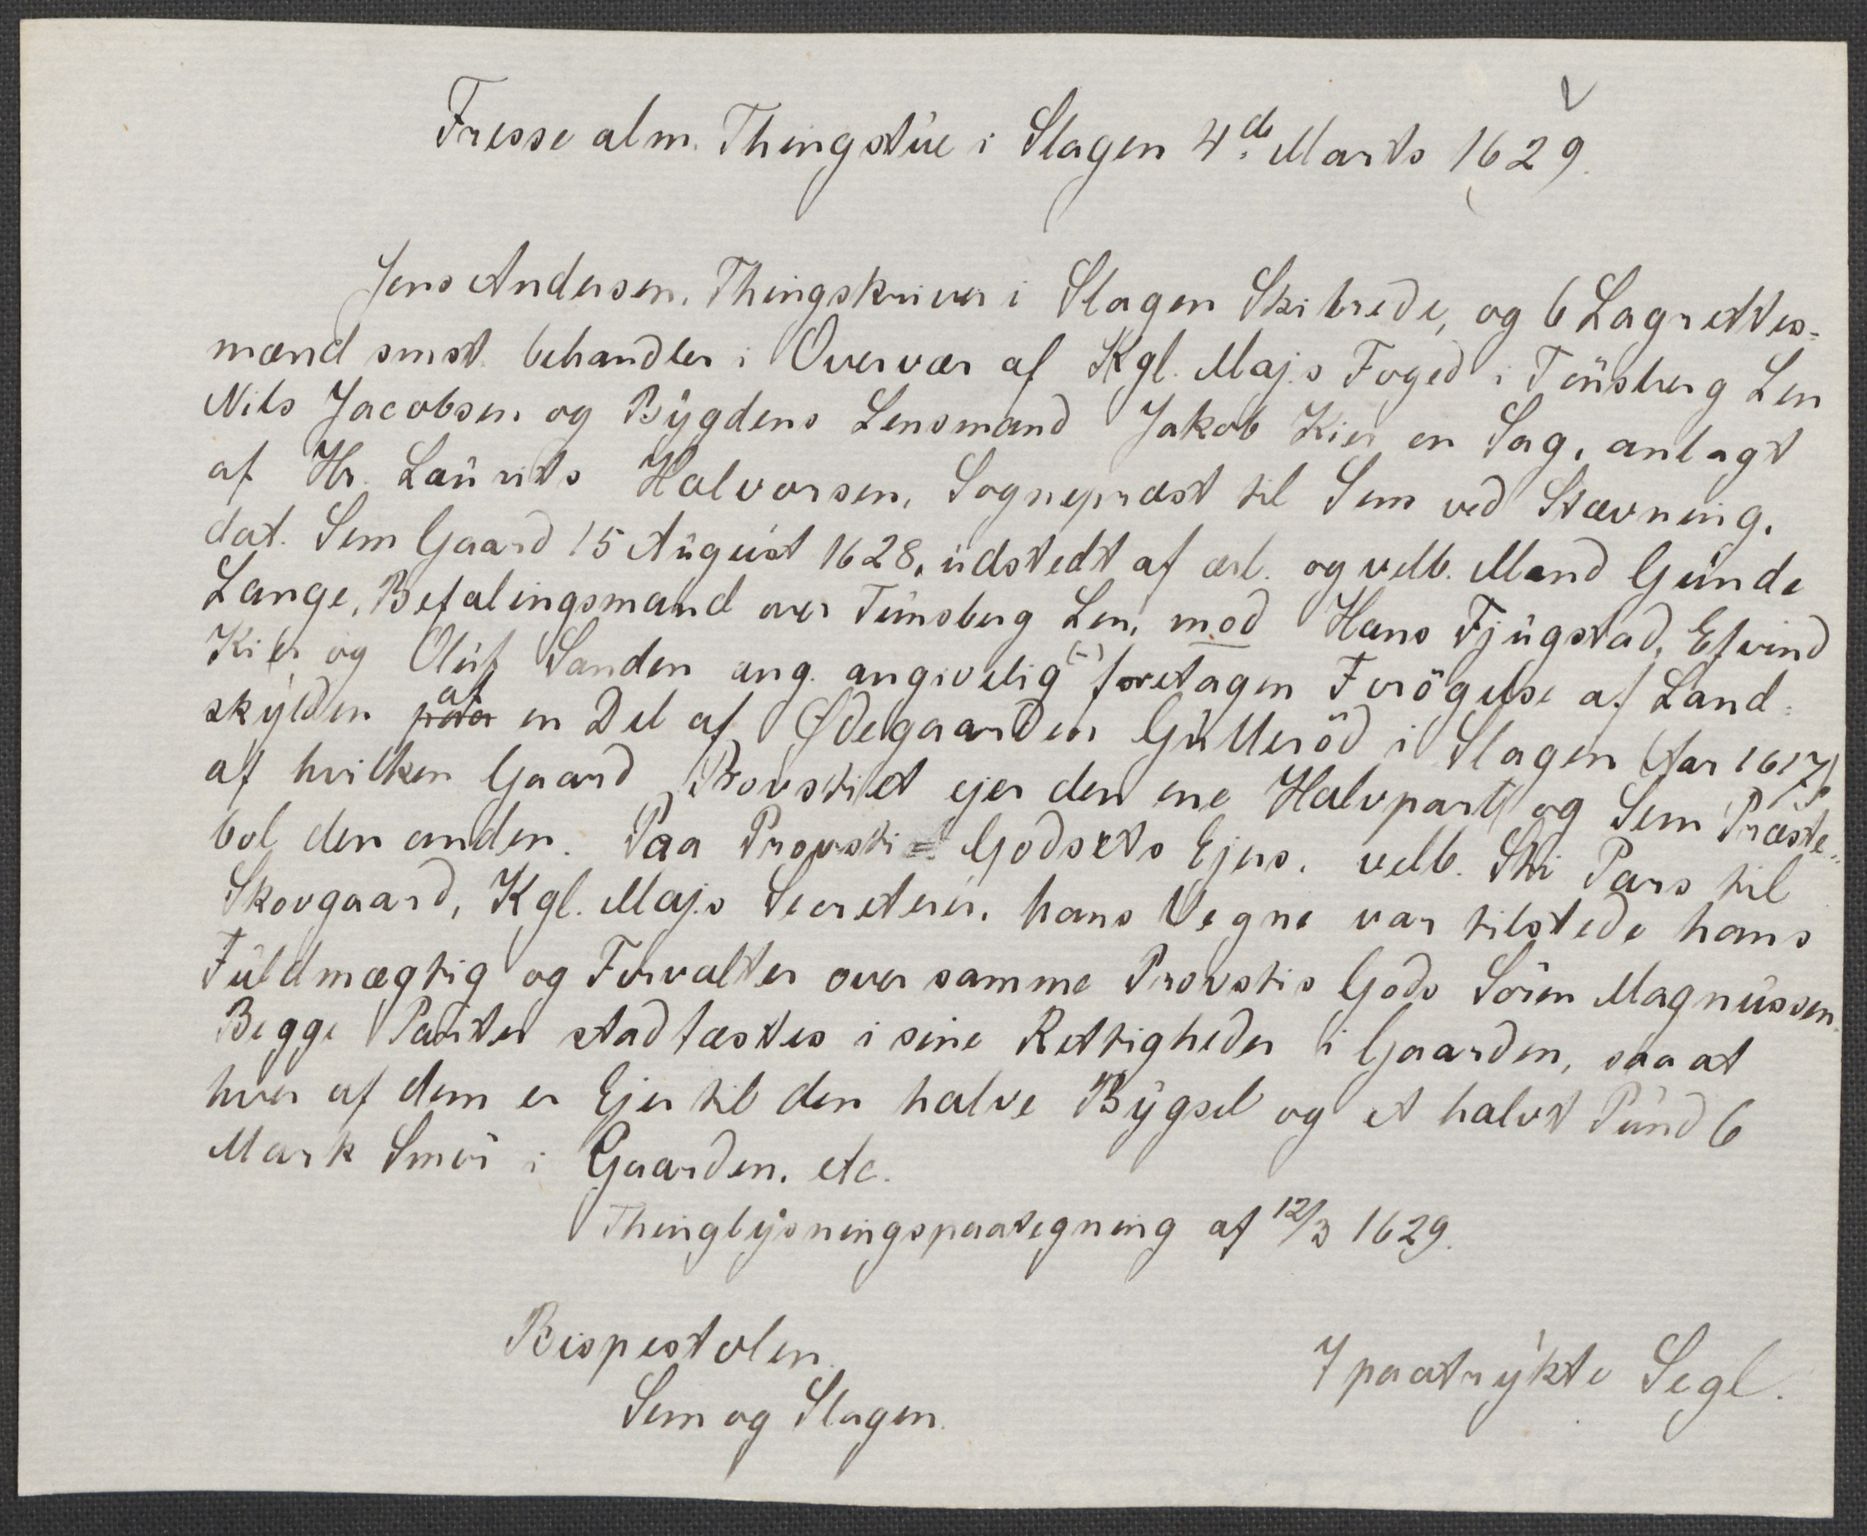 Fresse alm. Thingstue i Slagen 4de Marts 1629.
Jens Andersen, Thingskriver i Slagen Skibrede, og 6 Lagrettes-
mænd smst. behandler i Overvær af Kgl. Maj.s Foged i Tönsberg Len
Nils Jacobsen og Bygdens Lensmand Jakob Kier en Sag, anlagt
af Hr. Laurits Halvorsen, Sogneprest til Sem ved Stævning,
dat. Sem Gaard 15 August 1628, udstedt af ærl. og velb. Mand Gunde
Lange, Befalingsmand over Tunsberg Len, mod Hans Fjugstad, Efvind
Kier og Oluf Sanden ang. angivelig foretagen Forögelse af Land-
skylden af en Del af Ødegaarden Gulleröd i Slagen (Aar 1617)
af hvilken Gaard Provstiet ejer den ene Halvpart og Sem Præste-
bol den anden. Paa Provsti-Godsets Ejers, velb. Sti Pars til
Skovgaard, Kgl. Maj.s Secreterer, hans Vegne var tilstede hans
Fuldmægtig og Forvalter over samme Provstis Gods Sören Magnussen.
Begge Parter stadfæstes i sine Rettigheder i Gaarden, saa at
hver af dem er Ejer til den halve Bygsel og et halvt Pund 6
Mark Smör i Gaarden, etc.
Thinglysningspaategning af 12/3 1629.
Bispestolen.
7 paatrykte Segl.
Sem og Slagen.